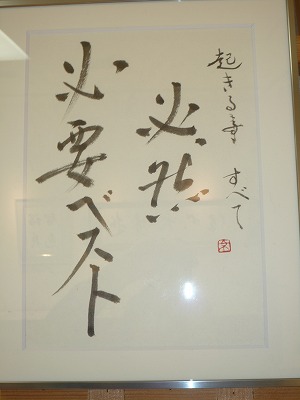 起きる事 すべて
必然
必要ベスト